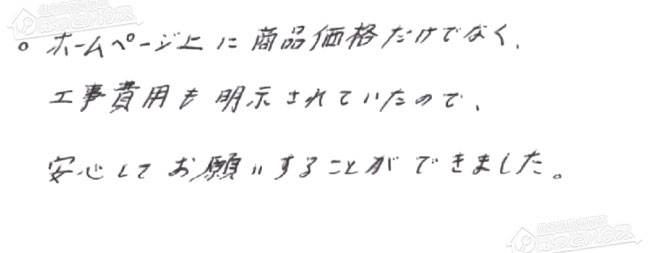 。ホームページ上に商品価格だけでなく、
工事費用も明示されていたので、
安心してお願いすることができました。